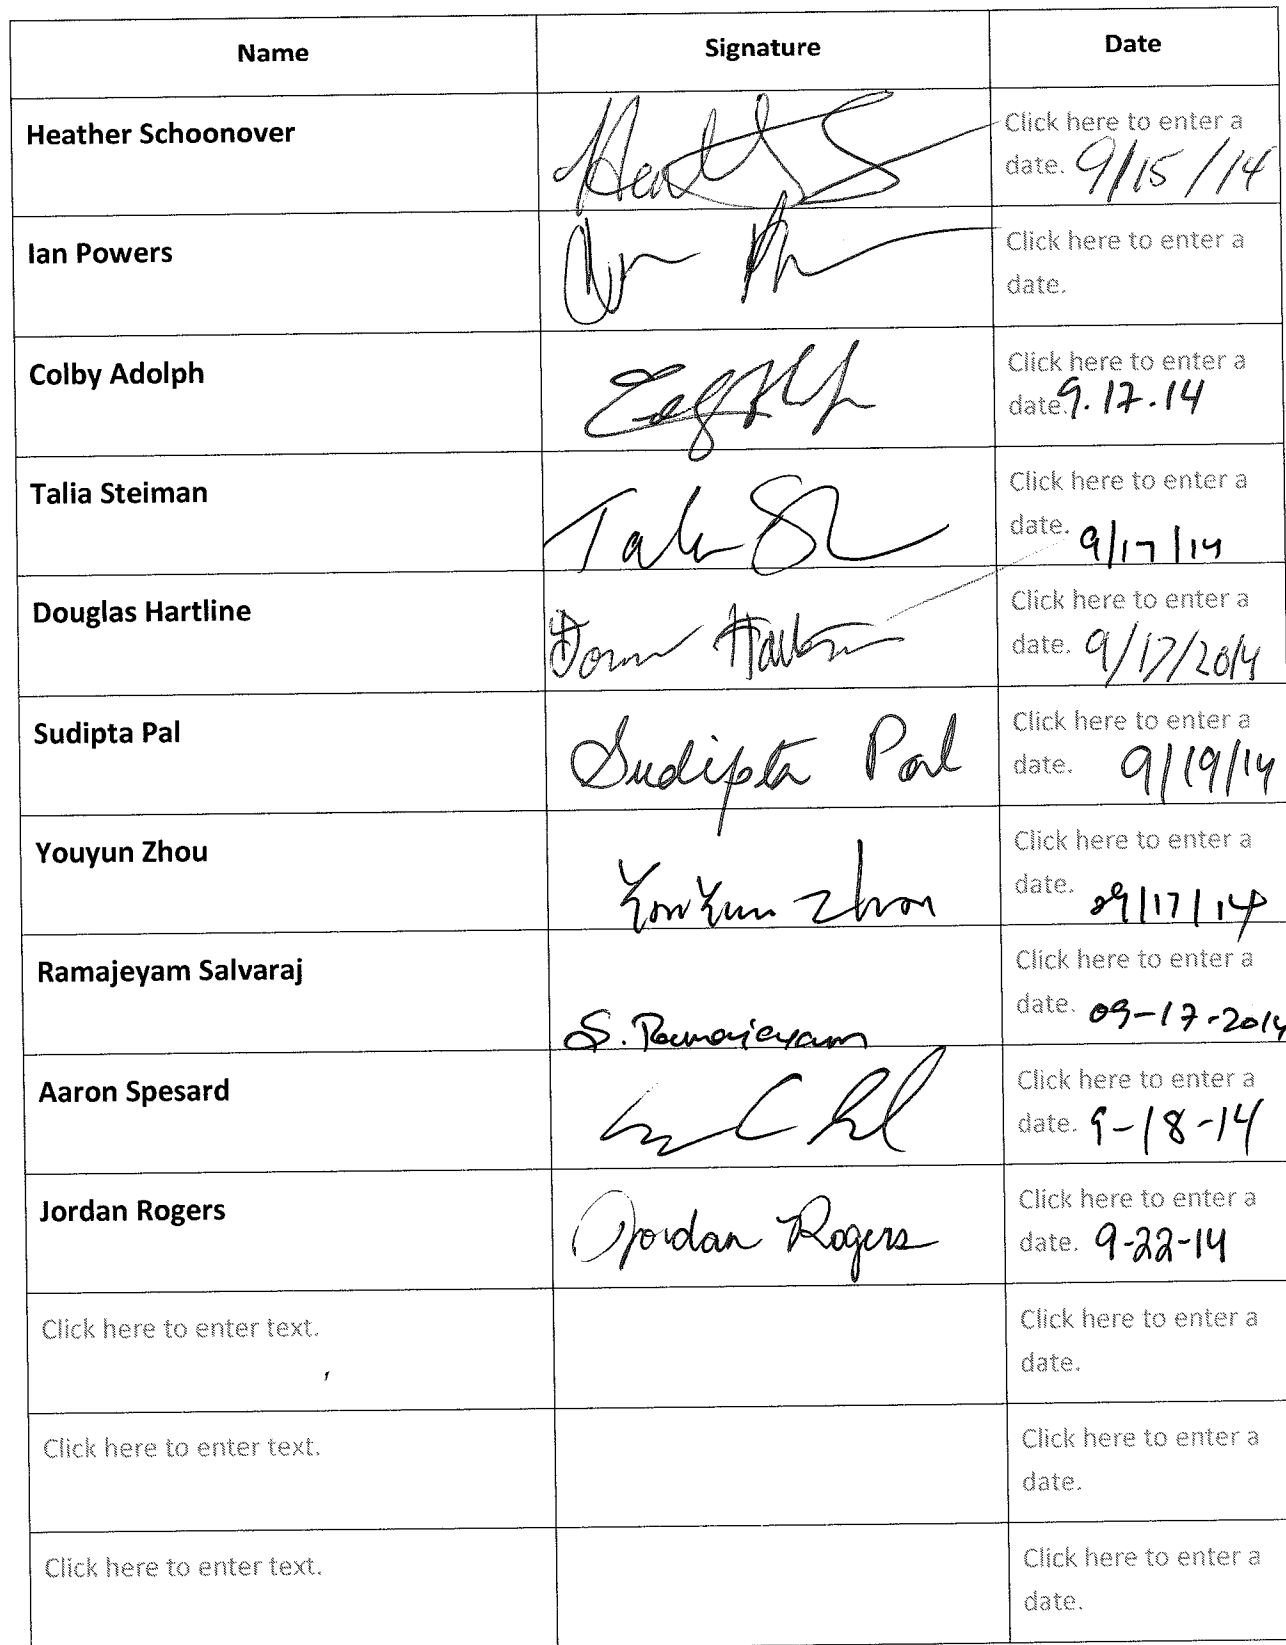 Name Signature Date
Heather Schoonover Click here to enter a
date. 9/15/14
Ian Powers Click here to enter a
date.
Colby Adolph Click here to enter a
date. 9.17.14
Talia Steiman Click here to enter a
date. 9/17/14
Douglas Hartline Click here to enter a
date. 9/17/2014
Sudipta Pal Sudipta Pal Click here to enter a
date. 9/19/14
Youyun Zhou Youyun Zhou Click here to enter a
date. 09/17/14
Ramajeyam Salvaraj Click here to enter a
S. Ramajeyam date. 09-17-2014
Aaron Spesard Click here to enter a
date. 9-18-14
Jordan Rogers Jordan Rogers Click here to enter a
date. 9-22-14
Click here to enter text. Click here to enter a
date.
Click here to enter text. Click here to enter a
date.
Click here to enter text. Click here to enter a
date.